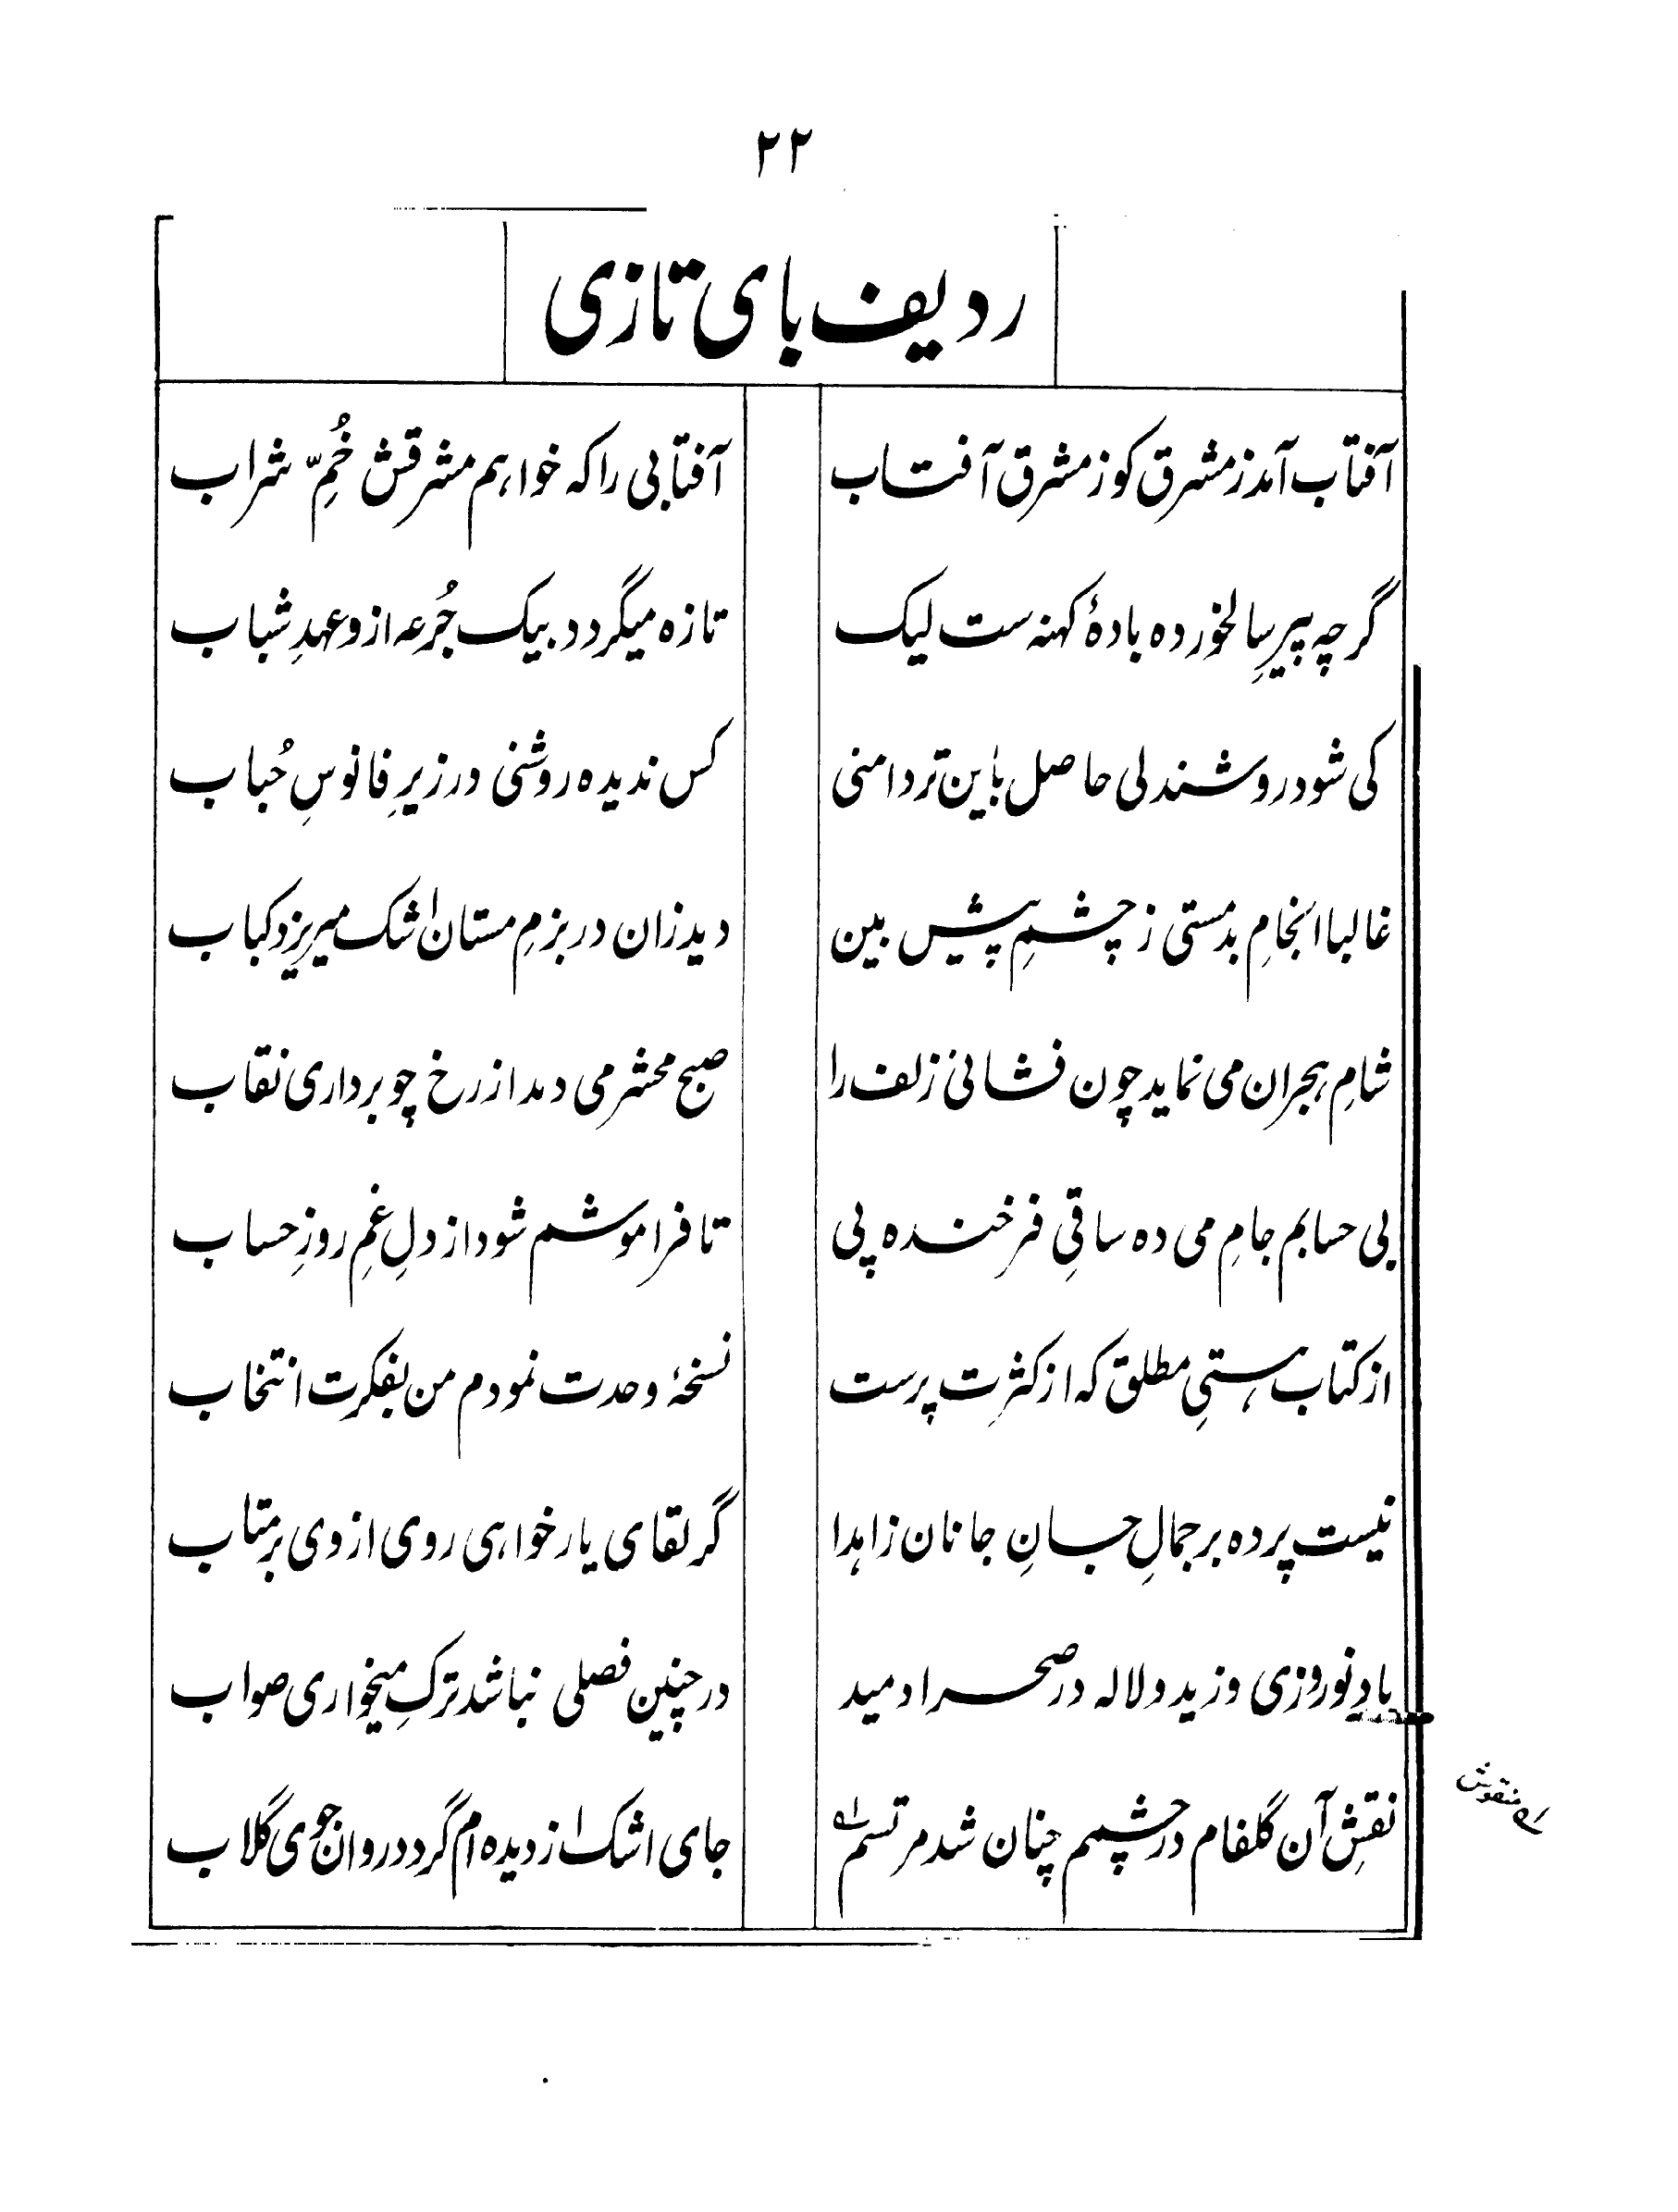 ۲۲
ردیف بای تازی
آفتاب آمد ز مشرق کو ز مشرق آفتاب
آفتابی را که خواهم مشرقش خُمِّ شراب
گرچه پیرِ سالخورده بادهٔ کهنه ست لیک
تازه میگردد بیک جُرعه ازو عهدِ شباب
کی شود روشندلی حاصل باین تر دامنی
کس ندیده روشنی در زیرِ فانوسِ حُباب
غالبا انجامِ بدمستی ز چشمِ پیش بین
دید زان در بزمِ مستان اشک میریزد کباب
شامِ هجران می نماید چون فشانی زلف را
صبح محشر می دمد از رخ چو برداری نقاب
بی حسابم جامِ می ده ساقیِ فرخنده پی
تا فراموشم شود از دلِ غمِ روزِ حساب
از کتاب هستیِ مطلق که از کثرت پرست
نسخهٔ وحدت نمودم من بفکرت انتخاب
نیست پرده بر جمالِ جسانِ جانان زاهدا
گر لقای یار خواهی روی از وی بر متاب
بادِ نوروزی وزید و لاله در صحرا دمید
در چنین فصلی نباشد ترکِ میخواری صواب
نقشِ آن گلفام در چشمم چنان شد مرتسم
جای اشک از دیده ام گردد روان جوی گلاب
منقوش